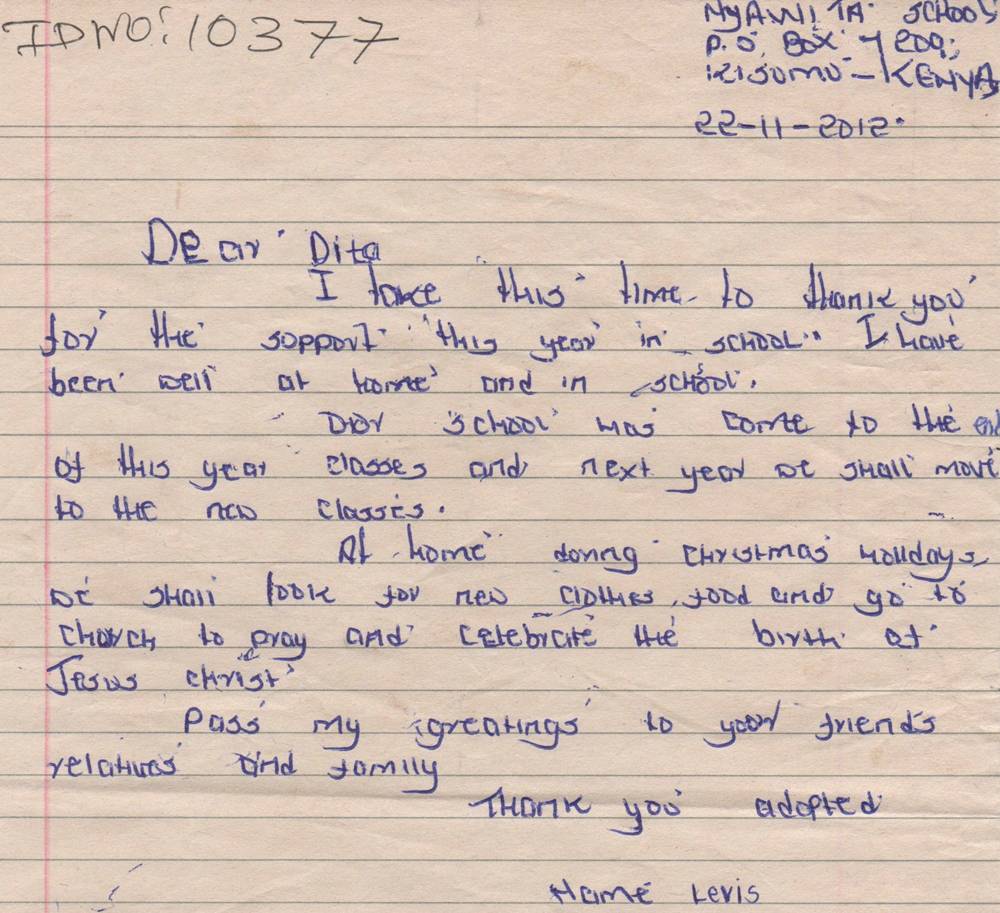 IDNO: 10377
NYAWITA SCHOOL
P.O. BOX
KISUMU - KENYA
22-11-2012.
Dear Dita
I take this time to thank you
for the support this year in school. I have
been well at home and in school.
Our school has come to the end
of this year classes and next year we shall move
to the new classes.
At home during christmas holidays,
we shall look for new clothes, food and go to
church to pray and celebrate the birth of
Jesus christ
Pass my greatings to your friends
relatives and family
Thank you adopted
Name Levis